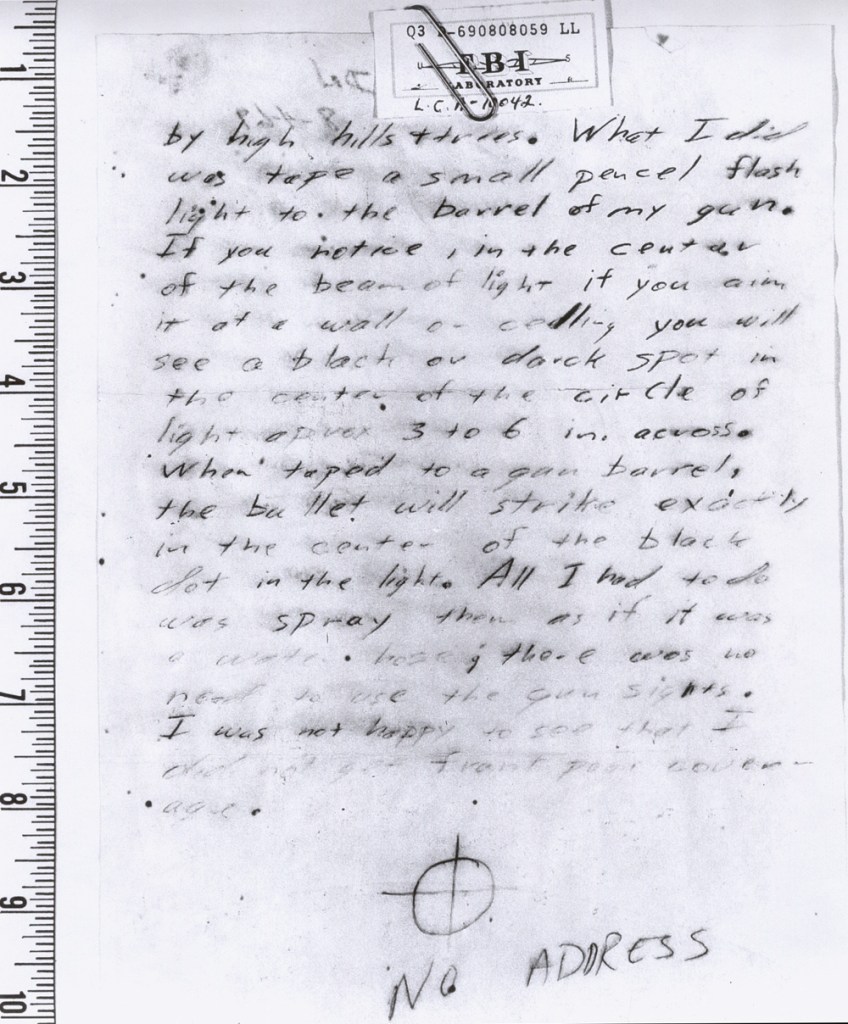 Q3 Z-690808059 LL
FBI
LABORATORY
L.C. A-10042.
by high hills + trees. What I did
was tape a small pencel flash
light to the barrel of my gun.
If you notice, in the center
of the beam of light if you aim
it at a wall or celling you will
see a black or darck spot in
the center of the circle of
light aprox 3 to 6 in. across.
When taped to a gun barrel,
the bullet will strike exactly
in the center of the black
dot in the light. All I had to do
was spray them as if it was
a water hose; there was no
need to use the gun sights.
I was not happy to see that I
did not get front page cover-
age.
NO ADDRESS
1
2
3
4
5
6
7
8
9
10